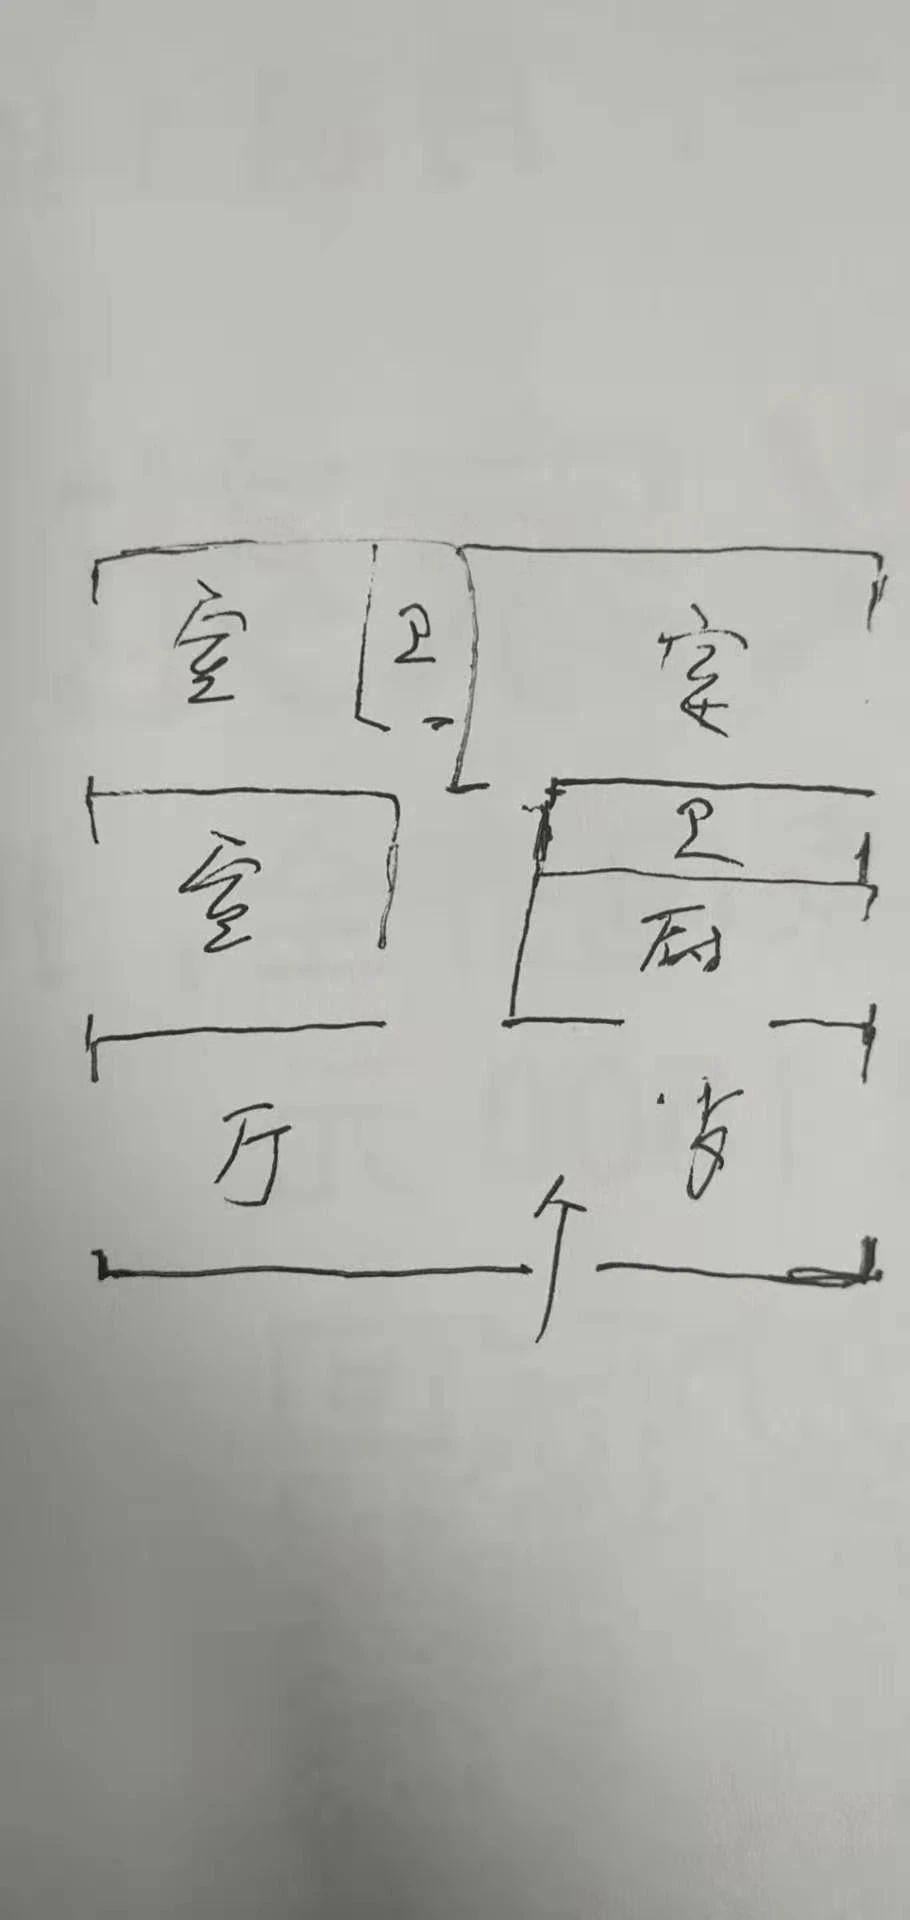 室 卫 室
室 卫
厨
厅